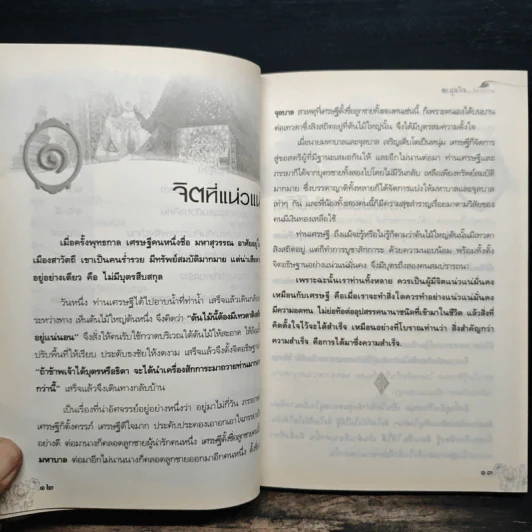 ๑
จิตที่แน่วแน่
เมื่อครั้งพุทธกาล เศรษฐีคนหนึ่งชื่อ มหาสุวรรณ อาศัยอยู่
เมืองสาวัตถี เขาเป็นคนร่ำรวย มีทรัพย์สมบัติมากมาย แต่น่าเสีย
อยู่อย่างเดียว คือ ไม่มีบุตรสืบสกุล
วันหนึ่ง ท่านเศรษฐีได้ไปอาบน้ำที่ท่าน้ำ เสร็จแล้วเดินกลับ
ระหว่างทาง เห็นต้นไม้ใหญ่ต้นหนึ่ง จึงคิดว่า "ต้นไม้นี้ต้องมีเทวดาสิงสถิต
อยู่แน่นอน" จึงสั่งให้คนรับใช้กวาดบริเวณใต้ต้นไม้ให้สะอาด
ปรับพื้นที่ให้เรียบ ประดับธงชัยให้งดงาม เสร็จแล้วจึงตั้งจิตอธิษฐาน
"ถ้าข้าพเจ้าได้บุตรหรือธิดา จะได้นำเครื่องสักการะมาถวายท่านมาก
กว่านี้" เสร็จแล้วจึงเดินทางกลับบ้าน
เป็นเรื่องที่น่าอัศจรรย์อยู่อย่างหนึ่งว่า อยู่มาไม่กี่วัน ภรรยา
เศรษฐีก็ตั้งครรภ์ เศรษฐีดีใจมาก ประคับประคองเอาอกเอาใจภรรยา
อย่างดี ต่อมานางก็คลอดลูกชายผู้น่ารักคนหนึ่ง เศรษฐีตั้งชื่อลูกชาย
มหาบาล ต่อมาอีกไม่นานนางก็คลอดลูกชายออกมาอีกคนหนึ่ง ตั้งชื่อ
๑๒
จุลบาล สาเหตุที่เศรษฐีตั้งชื่อลูกชายทั้งสองคนเช่นนี้ ก็เพราะตนเองได้บนบาน
ต่อเทวดาซึ่งสิงสถิตอยู่ที่ต้นไม้ใหญ่นั้น จึงได้บุตรสมความตั้งใจ
เมื่อนายมหาบาลและจุลบาล เจริญเติบโตเป็นหนุ่ม เศรษฐีก็จัดการ
สู่ขอสตรีผู้ที่มีฐานะเสมอกันให้ และอีกไม่นานต่อมา ท่านเศรษฐีและ
ภรรยาก็ได้จากบุตรชายทั้งสองไปโดยไม่มีวันกลับ เหลือเพียงทรัพย์สมบัติ
มากมาย ซึ่งบรรดาญาติทั้งหลายก็ได้จัดการแบ่งให้มหาบาลและจุลบาล
เท่าๆ กัน และพี่น้องทั้งสองคนนี้ก็มีความสุขสำราญเรื่อยมาตามวิสัยของ
คนมีเงินทองเหลือใช้
ท่านเศรษฐี ถึงแม้จะรู้หรือไม่รู้ก็ตามว่าต้นไม้ใหญ่ต้นนั้นมีเทวดา
สิงสถิตอยู่ แต่ก็ทำการบูชาสักการะ ด้วยความนอบน้อม พร้อมทั้งตั้ง
จิตอธิษฐานอย่างแน่วแน่มั่นคง จึงมีบุตรถึงสองคนสมปรารถนา
เพราะฉะนั้นเราท่านทั้งหลาย ควรเป็นผู้มีจิตแน่วแน่มั่นคง
เหมือนกับเศรษฐี คือเมื่อเราจะทำสิ่งใดควรทำอย่างแน่วแน่มั่นคง
มีความอดทน ไม่ย่อท้อต่ออุปสรรคนานาชนิดที่เข้ามาในชีวิต แล้วสิ่งที่
คิดตั้งใจไว้จะได้สำเร็จ เหมือนอย่างที่โบราณท่านว่า สิ่งสำคัญกว่า
ความสำเร็จ คือการได้มาซึ่งความสำเร็จ.
๑๓